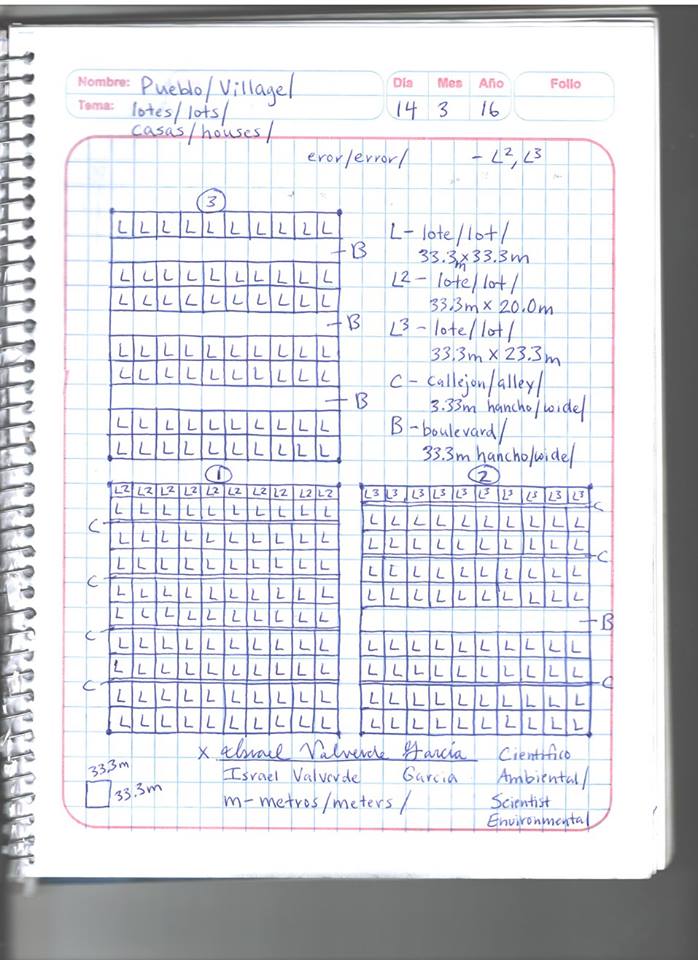 Nombre: Pueblo/Village/
Tema: lotes/lots/
casas/houses/
Día Mes Año
14 3 16
Folio
eror/error/ - L², L³
3
L L L L L L L L L L
B
L L L L L L L L L L
L L L L L L L L L L
B
L L L L L L L L L L
L L L L L L L L L L
B
L L L L L L L L L L
L L L L L L L L L L
L - lote/lot/
33.3m x 33.3m
L² - lote/lot/
33.3m x 20.0m
L³ - lote/lot/
33.3m x 23.3m
C - Callejon/alley/
3.33m hancho/wide/
B - boulevard/
33.3m hancho/wide/
1
L2 L2 L2 L2 L2 L2 L2 L2 L2 L2
L L L L L L L L L L
C
L L L L L L L L L L
L L L L L L L L L L
C
L L L L L L L L L L
L L L L L L L L L L
C
L L L L L L L L L L
L L L L L L L L L L
C
L L L L L L L L L L
L L L L L L L L L L
2
L3 L3 L3 L3 L3 L3 L3 L3 L3 L3
C
L L L L L L L L L L
L L L L L L L L L L
C
L L L L L L L L L L
L L L L L L L L L L
B
L L L L L L L L L L
L L L L L L L L L L
C
L L L L L L L L L L
L L L L L L L L L L
33.3m
33.3m
x Israel Valverde Garcia
Israel Valverde Garcia
m - metros/meters/
Cientifico
Ambiental/
Scientist
Environmental